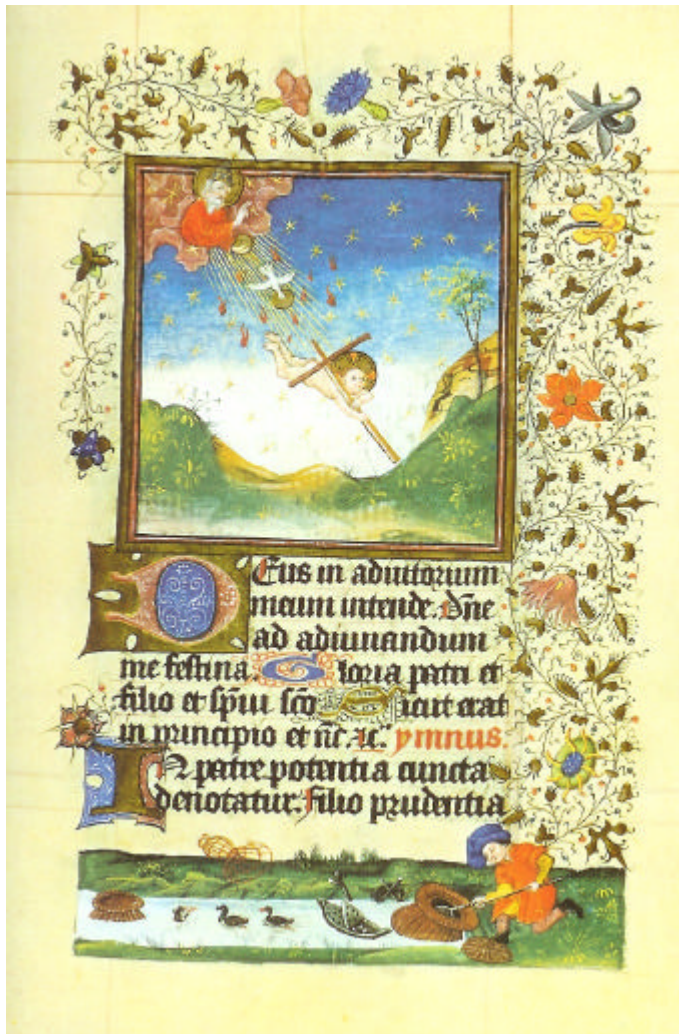 Deus in adiutorium
meum intende. Dn̄e
ad adiuuandum
me festina. Gloria patri et
filio et sp̄ui sc̄o Sicut erat
in principio et n̄c. ⁊c. ymnus.
In patre potentia cuncta
denotatur. filio prudentia